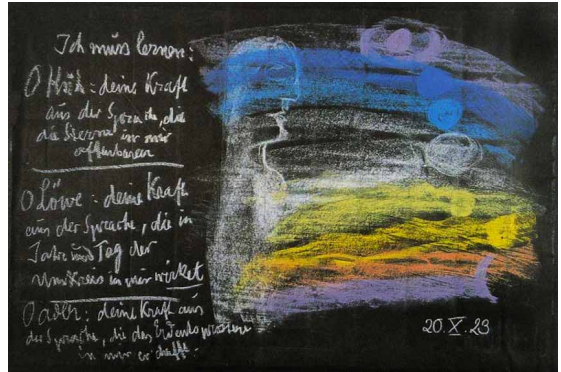 Ich muss lernen:
O Kuh: deine Kraft
aus der Sprache, die
die Sterne in mir
offenbaren
O Löwe: deine Kraft
aus der Sprache, die in
Jahr und Tag der
Umkreis in mir wirket
O adler: deine Kraft aus
der Sprache, die das
in mir erschafft:
20.X.23